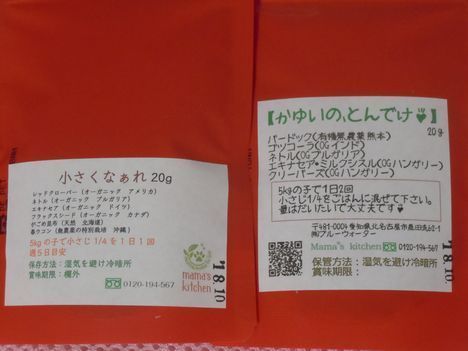 小さくなぁれ 20g
レッドクローバー (オーガニック アメリカ)
ネトル (オーガニック ブルガリア)
エキナセア (オーガニック ドイツ)
フラックスシード (オーガニック カナダ)
がごめ昆布 (天然 北海道)
春ウコン (無農薬の特別栽培 沖縄)
5kgの子で小さじ 1/4を1日1回
週5日目安
保存方法：湿気を避け冷暗所
賞味期限：欄外
0120-194-567
mama's
kitchen
18.10
【かゆいの、とんでけ♥】
20g
バードック(有機無農薬熊本)
ゴツコーラ(OGインド)
ネトル(OGブルガリア)
エキナセア・ミルクシスル(OGハンガリー)
クリーバーズ(OGハンガリー)
5kgの子で1日2回
小さじ1/4をごはんに混ぜて下さい。
量はだいたいで大丈夫です♥
〒481-0004愛知県北名古屋市鹿田
㈱ブルーウォーター
Mama's kitchen 0120-194-567
保管方法：湿気を避け冷暗所
賞味期限：
18.10.